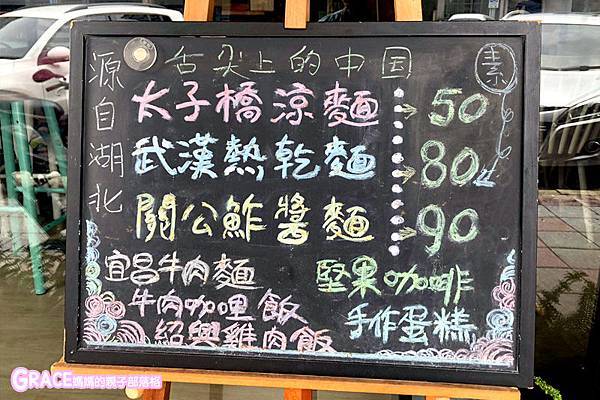 舌尖上的中国
源自湖北
素
太子橋涼麵 50
武漢熱乾麵 80
關公鮓醬麵 90
宜昌牛肉麵
牛肉咖哩飯
紹興雞肉飯
堅果咖啡
手作蛋糕
GRACE媽媽的親子部落格